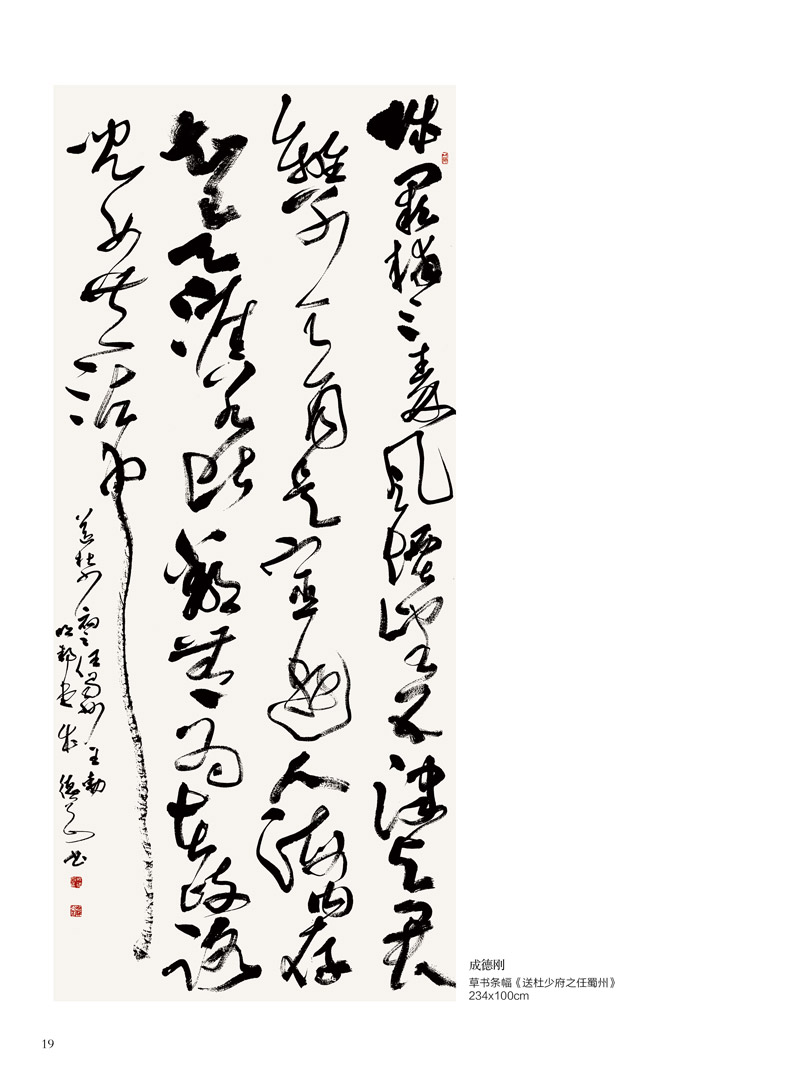 城闕輔三秦風煙望五津与君
離別意同是宦遊人海内存
知己天涯若比鄰無為在歧路
兒女共沾巾
送杜少府之任蜀州王勃
成德刚书
成德刚
草书条幅《送杜少府之任蜀州》
234x100cm
19